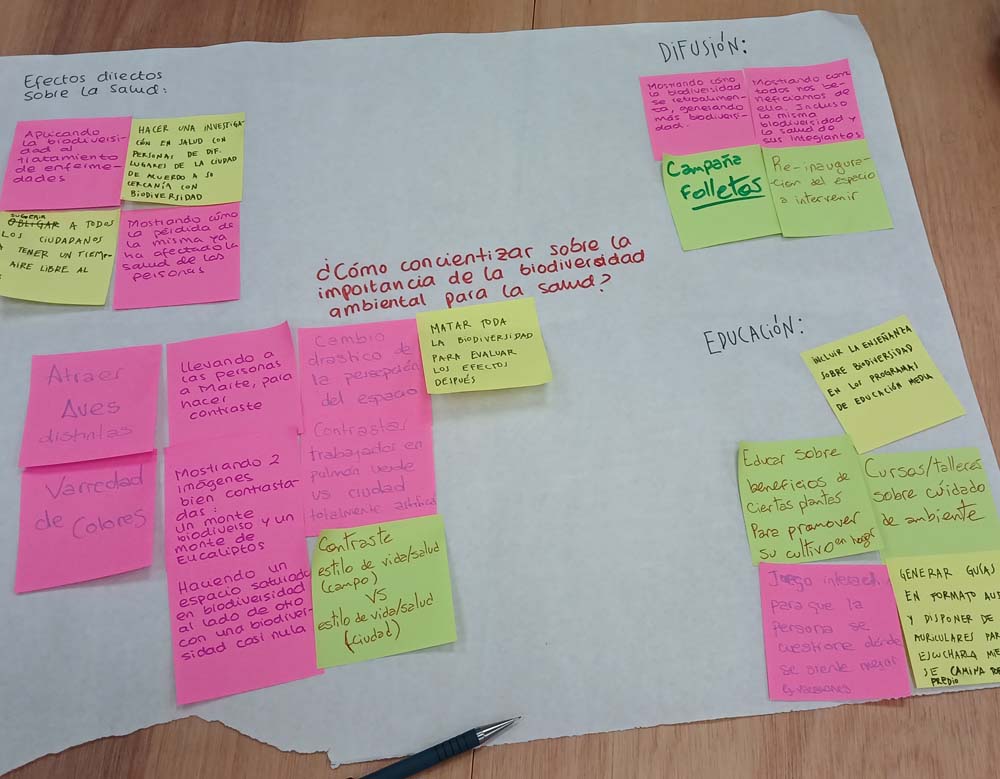 Efectos directos
sobre la salud:
Aplicando
la biodiversi-
dad al
tratamiento
de enferme-
dades
HACER UNA INVESTIGA-
CIÓN EN SALUD CON
PERSONAS DE DIF.
LUGARES DE LA CIUDAD
DE ACUERDO A SO
CERCANÍA CON
BIODIVERSIDAD
SUGERIR
OBLIGAR A TODOS
LOS CIUDADANOS
A TENER UN TIEMPO
AIRE LIBRE AL
Mostrando cómo
la pérdida de
la misma ya
ha afectado la
salud de las
personas
¿Cómo concientizar sobre la
importancia de la biodiversidad
ambiental para la salud?
Atraer
Aves
distintas
Varredad
de Colores
llevando a
las personas
a Marte, para
hacer
contraste
Mostrando 2
imágenes
bien contrasta-
das:
un monte
biodiverso y un
monte de
Eucaliptos
Haciendo un
espacio saturado
en biodiversidad
al lado de otro
con una biodiver-
sidad casi nula
Cambio
drastico de
la percepción
del espacio
Contrastar
trabajadores en
pulmón verde
vs ciudad
totalmente
MATAR TODA
LA BIODIVERSIDAD
PARA EVALUAR
LOS EFECTOS
DESPUÉS
Contraste
estilo de vida/salud
(campo)
VS
estilo de vida/salud
(ciudad)
DIFUSIÓN:
Mostrando cómo
la biodiversidad
se retroalimen-
ta, generando
más biodiversi-
dad.
Mostrando como
todos nos be-
neficiamos de
ella. Incluso
la misma
biodiversidad y
la salud de
sus integrantes
Campaña
Folletos
Re-inaugura-
-cion del espacio
a intervenir
EDUCACIÓN:
INCLUIR LA ENSEÑANZA
SOBRE BIODIVERSIDAD
EN LOS PROGRAMAS
DE EDUCACIÓN MEDIA
Educar sobre
beneficios de
ciertas plantas
Para promover
su cultivo en hogar
Cursos/talleres
sobre cuidado
de ambiente
Juego
para que la
persona se
cuestione dónde
se siente mejor
GENERAR GUÍAS
EN FORMATO AUD
Y DISPONER DE
AURICULARES PAR
ESCUCHARLA MI
SE CAMINA POR
PREDIO